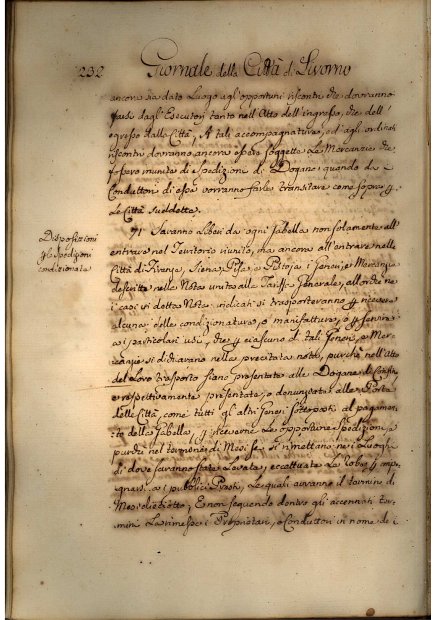 232 Giornale della Città di Livorno
ancora sia dato Luogo agl'opportuni riscontri che dovranno
farsi dagl'Esecutori tanto nell'Atto dell'ingresso, che dell'
egresso dalla Città, A tali accompagnature, ed agl'ordinati
riscontri dovranno ancora esser soggette Le Mercanzie che
fossero munite di spedizione di Dogane quando da
Conduttori di esse vorranno farle transitare come sopra p.
Le Città suddette.
Disposizioni
p le spedizioni
condizionate
71 Saranno Liberi da ogni Gabella non solamente all'
entrare nel Territorio riunito, ma ancora all'entrare nelle
Città di Firenze, Siena, Pisa, e Pistoja i Generi, e Mercanzie
descritte nella Nota unita alla Tariffa Generale, allorchè ne
i casi in detta Nota indicati si trasporteranno p ricevere
alcuna delle condizionature, o manifatture, o p servire
a i particolari usi, che p ciascuno di tali Generi, e Mer-
canzie si dichiarano nella precitata nota, purchè nell'Atto
del Loro trasporto siano presentate alle Dogane di Confine
e respettivamente presentate, o denunziate alle Porte
delle Città, come tutti gl'altri Generi sottoposti al pagamen-
to della Gabella, p riceverne Le opportune spedizioni, e
purchè nel termine di Mesi sei si rimettano ne i Luoghi
di dove saranno state Levate, eccettuate Le Robe p impe-
gnarsi a i pubblici Presti, Le quali avranno il termine di
Mesi diciotto, E non seguendo dentro gli accennati ter-
mini La rimessa i Proprietari, o Conduttori in nome de i